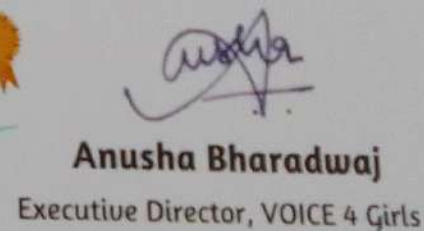 Anusha
Anusha Bharadwaj
Executive Director, VOICE 4 Girls